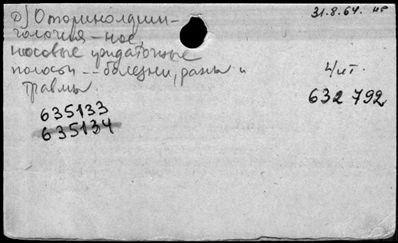 д) Оториноларин-
гология - нос,
носовые придаточные
полости -- болезни, раны и
травмы.
31.8.64. нр
4/ит.
632 792
635133
635134